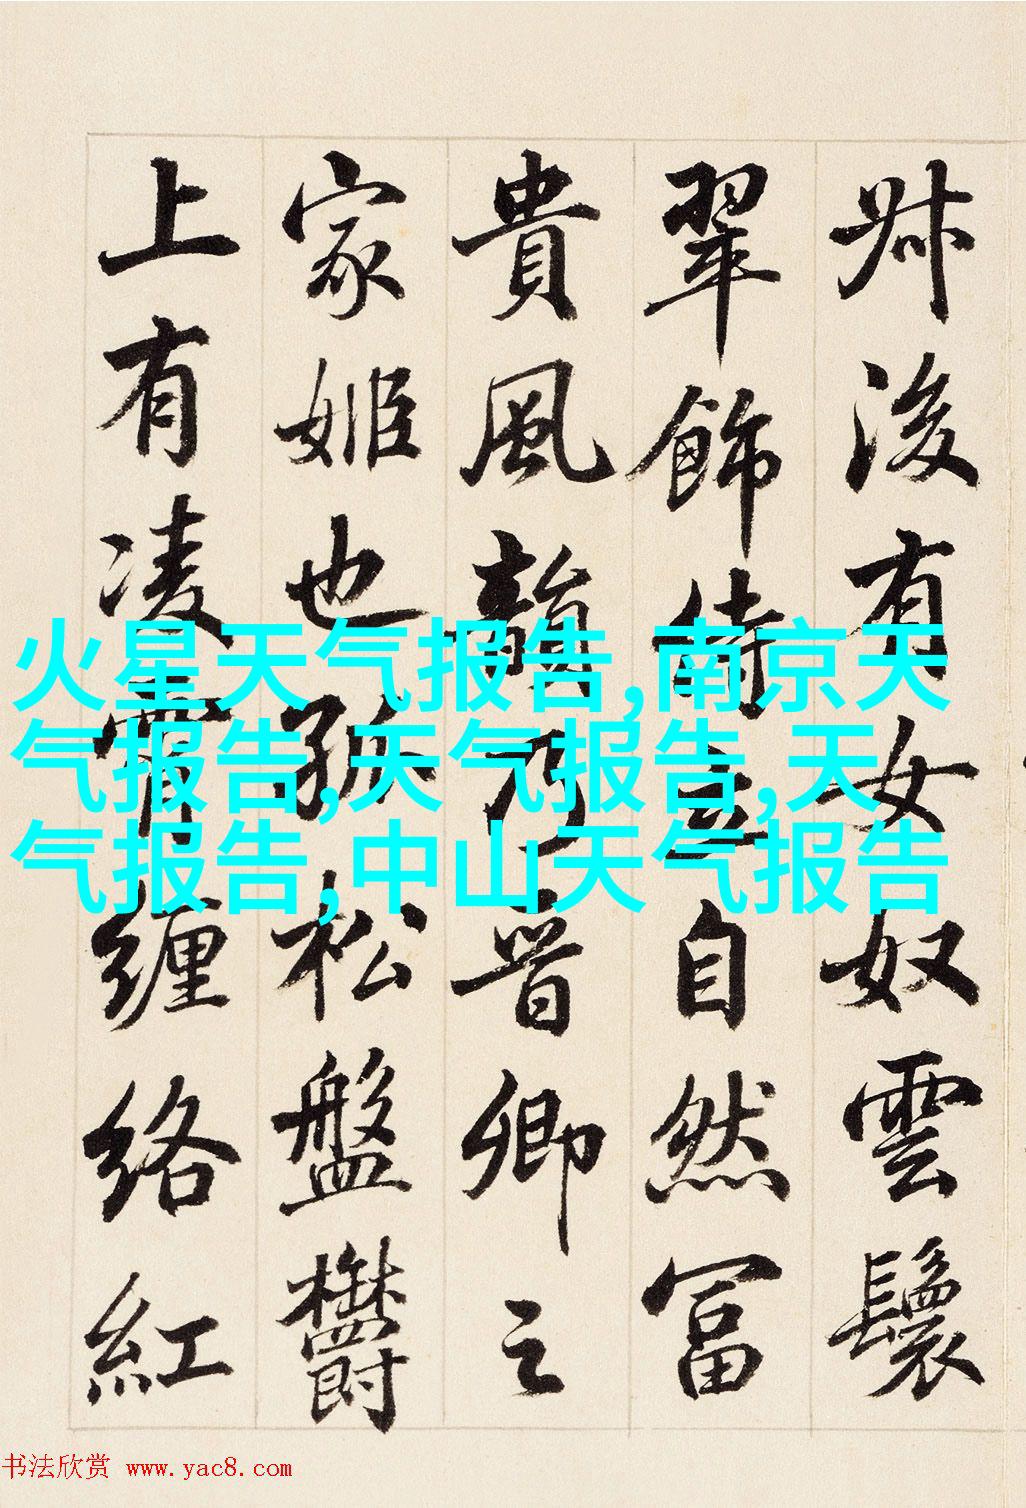 叔後有女奴雲鬟
翠飾侍立自然冨
貴風韻乃晋卿之
家姬也孤松盤欝
上有凌霄纏絡紅
火星天气报告,南京天
气报告,天气报告,天
气报告,中山天气报告
书法欣赏 www.yac8.com